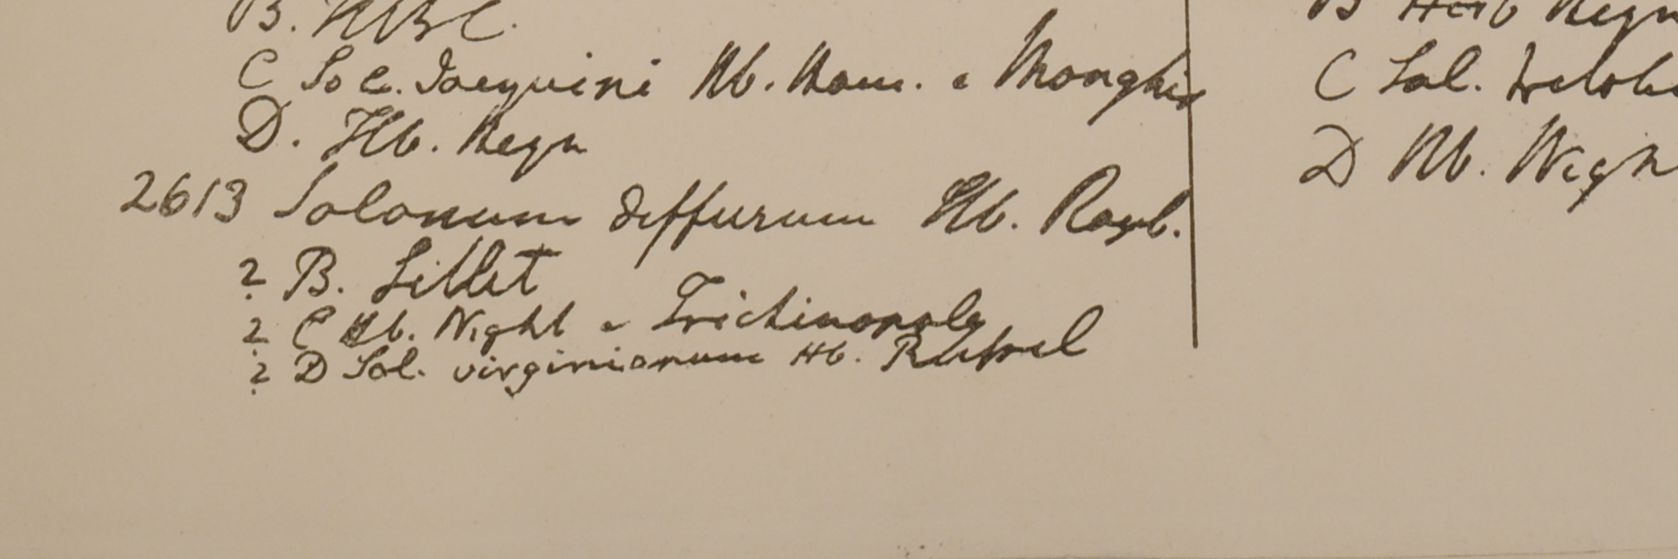 B. HBC.
C Sol. Jacquini Hb. Ham. e Monghir
D. Hb. Heyn
2613 Solanum diffusum Hb. Roxb.
? B. Sillet
? C Hb. Wight e Trichinopoly
? D Sol. virginianum Hb. Russel
B Herb Heyn
C Sol.
D Hb. Wigh